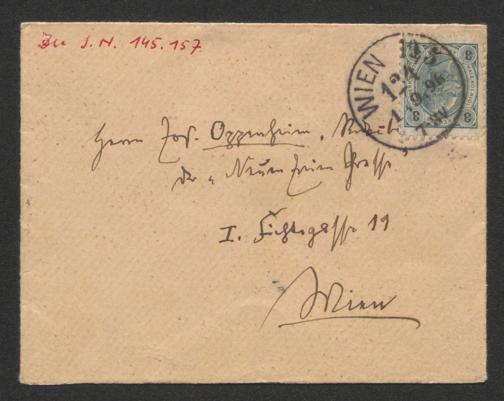 Zu I.N. 145.157
WIEN 113
12/1
1.9.96
1.N
3 3
3 3
Herrn Jos. Oppenheim, Redakt.
der "Neuen Freien Presse",
I. Fichtegasse 11
Wien